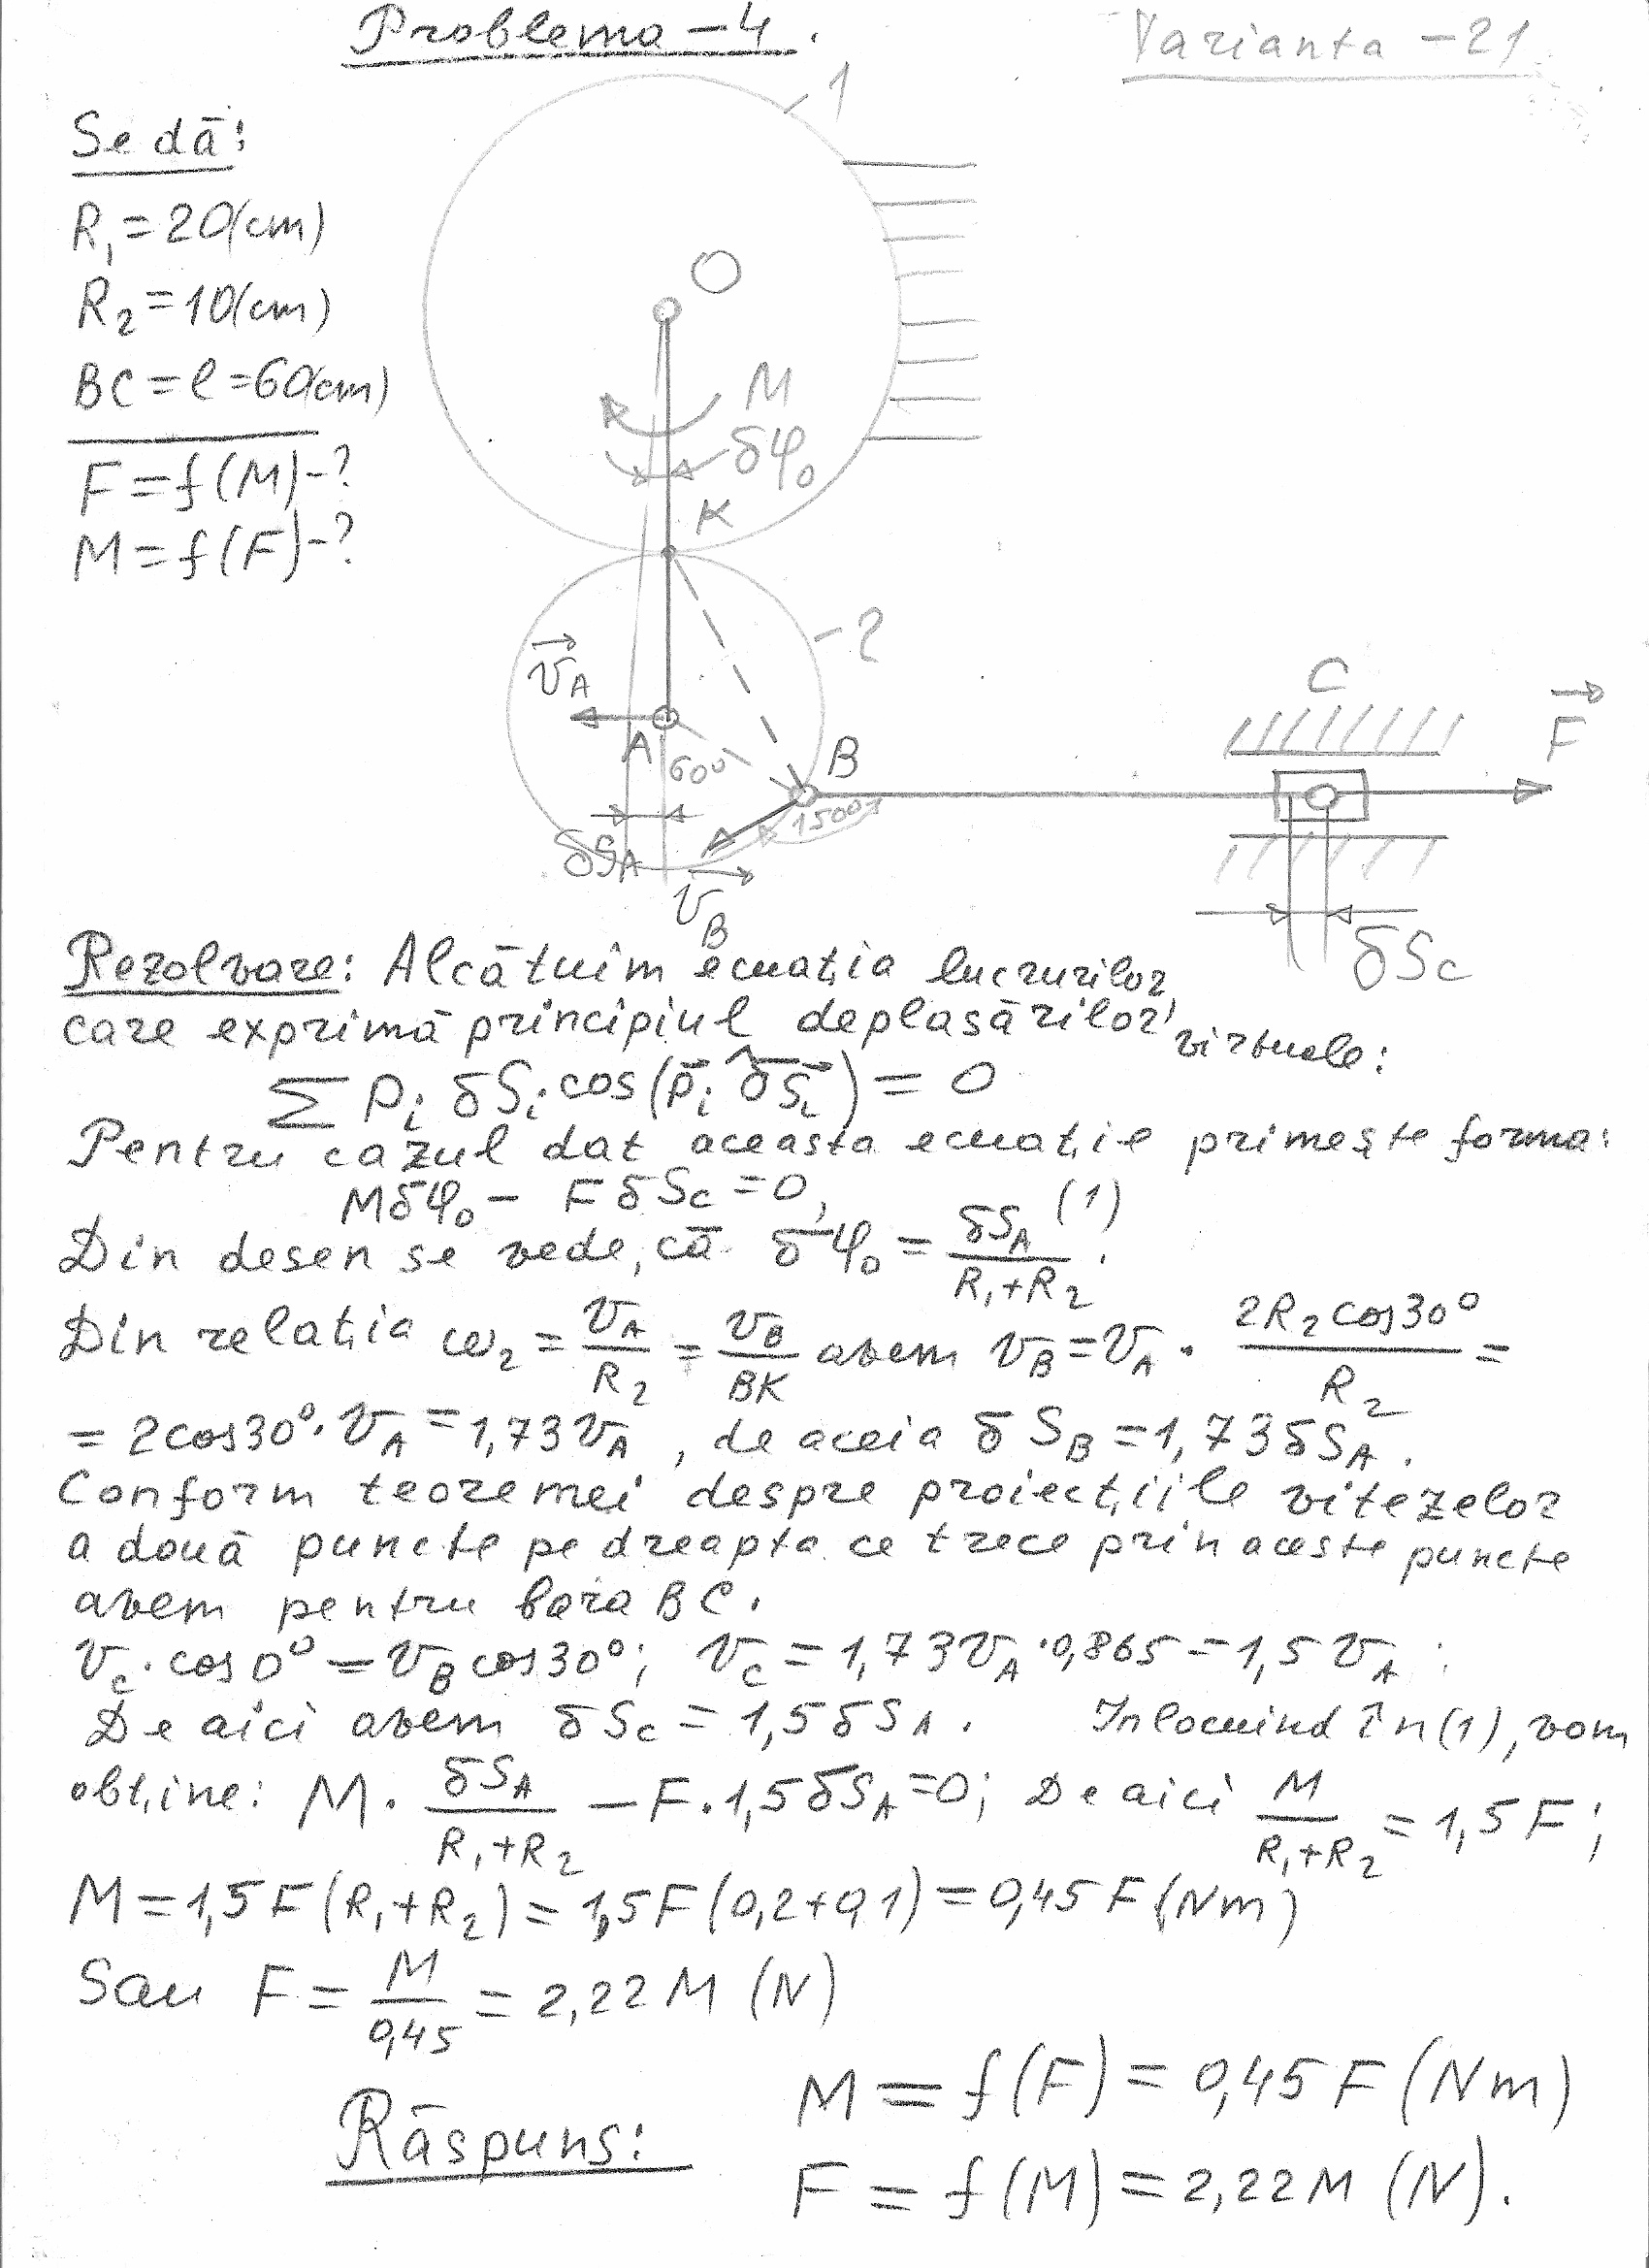 Problema – 4.
Varianta – 21
Se dă:
R₁ = 20(cm)
R₂ = 10(cm)
BC = l = 60(cm)
F = f(M) – ?
M = f(F) – ?
1
O
M
δφ₀
K
2
v⃗_A
A
60°
B
150°
δS_A
v⃗_B
C
F⃗
δS_C
Rezolvare: Alcătuim ecuația lucrurilor,
care exprimă principiul deplasărilor virtuale:
∑ P_i δS_i cos(p⃗_i ^ δS⃗_i) = 0
Pentru cazul dat aceasta ecuație primește forma:
Mδφ₀ – F δS_C = 0, (1)
Din desen se vede, că δφ₀ = δS_A / (R₁+R₂).
Din relația ω₂ = v_A / R₂ = v_B / BK avem v_B = v_A · 2R₂cos30° / R₂ =
= 2cos30° · v_A = 1,73v_A, de aceia δS_B = 1,73δS_A.
Conform teoremei despre proiecțiile vitezelor
a două puncte pe dreapta ce trece prin aceste puncte
avem pentru bara BC.
v_c · cos0° = v_B cos30°; v_c = 1,73v_A · 0,865 = 1,5 v_A;
De aici avem δS_c = 1,5 δS_A. Inlocuind în (1), vom
obține: M · δS_A / (R₁+R₂) – F · 1,5δS_A = 0; De aici M / (R₁+R₂) = 1,5 F;
M = 1,5 F (R₁+R₂) = 1,5F (0,2+0,1) = 0,45 F (Nm)
Sau F = M / 0,45 = 2,22 M (N)
Răspuns:
M = f(F) = 0,45 F (Nm)
F = f(M) = 2,22 M (N).